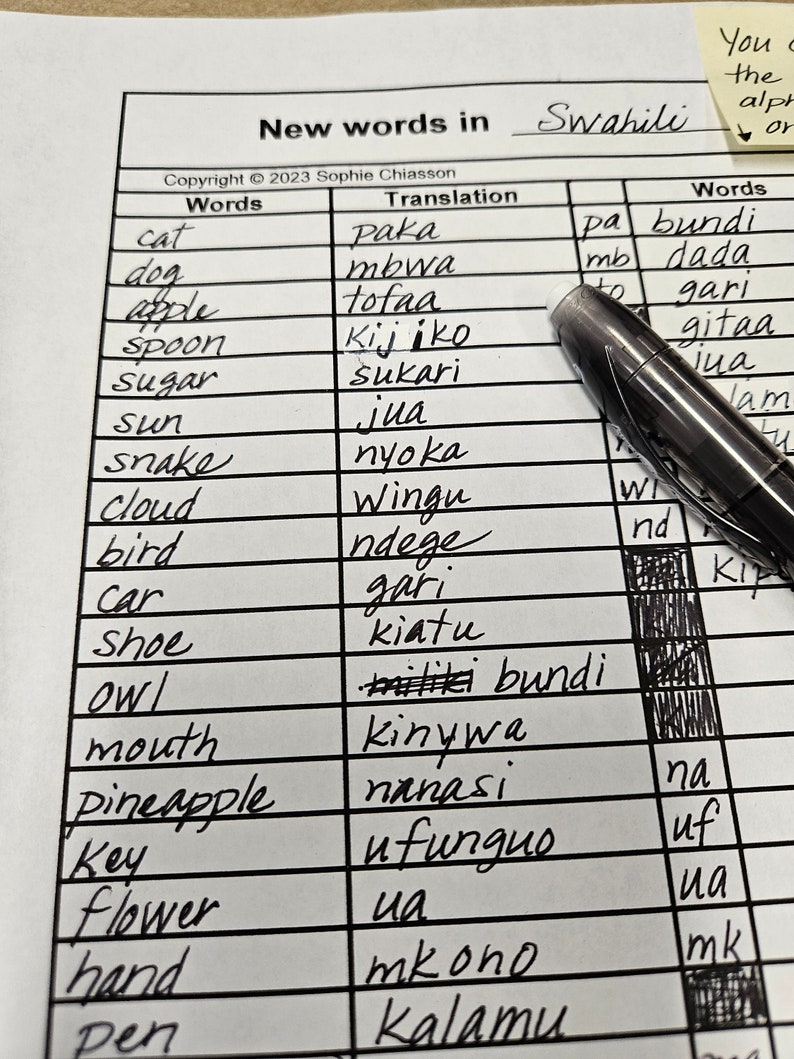 You
the
alph
or
New words in Swahili
Copyright © 2023 Sophie Chiasson
Words Translation Words
cat paka pa bundi
dog mbwa mb dada
apple tofaa to gari
spoon kijiko gitaa
sugar sukari jua
sun jua
snake nyoka
cloud wingu wi
bird ndege nd
car gari
shoe kiatu
owl miliki bundi
mouth kinywa
pineapple nanasi na
key ufunguo uf
flower ua ua
hand mkono mk
pen kalamu